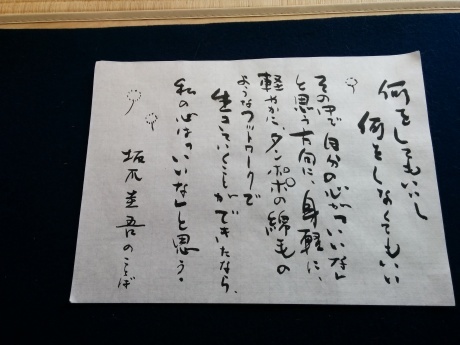 何をしてもいいし
何をしなくてもいい
その中で自分の心が「いいな」
と思う方向に、身軽に、
軽やかに、タンポポの綿毛の
ようなフットワークで
生きていくことができたなら、
私の心は「いいな」と思う。
坂爪圭吾のことば